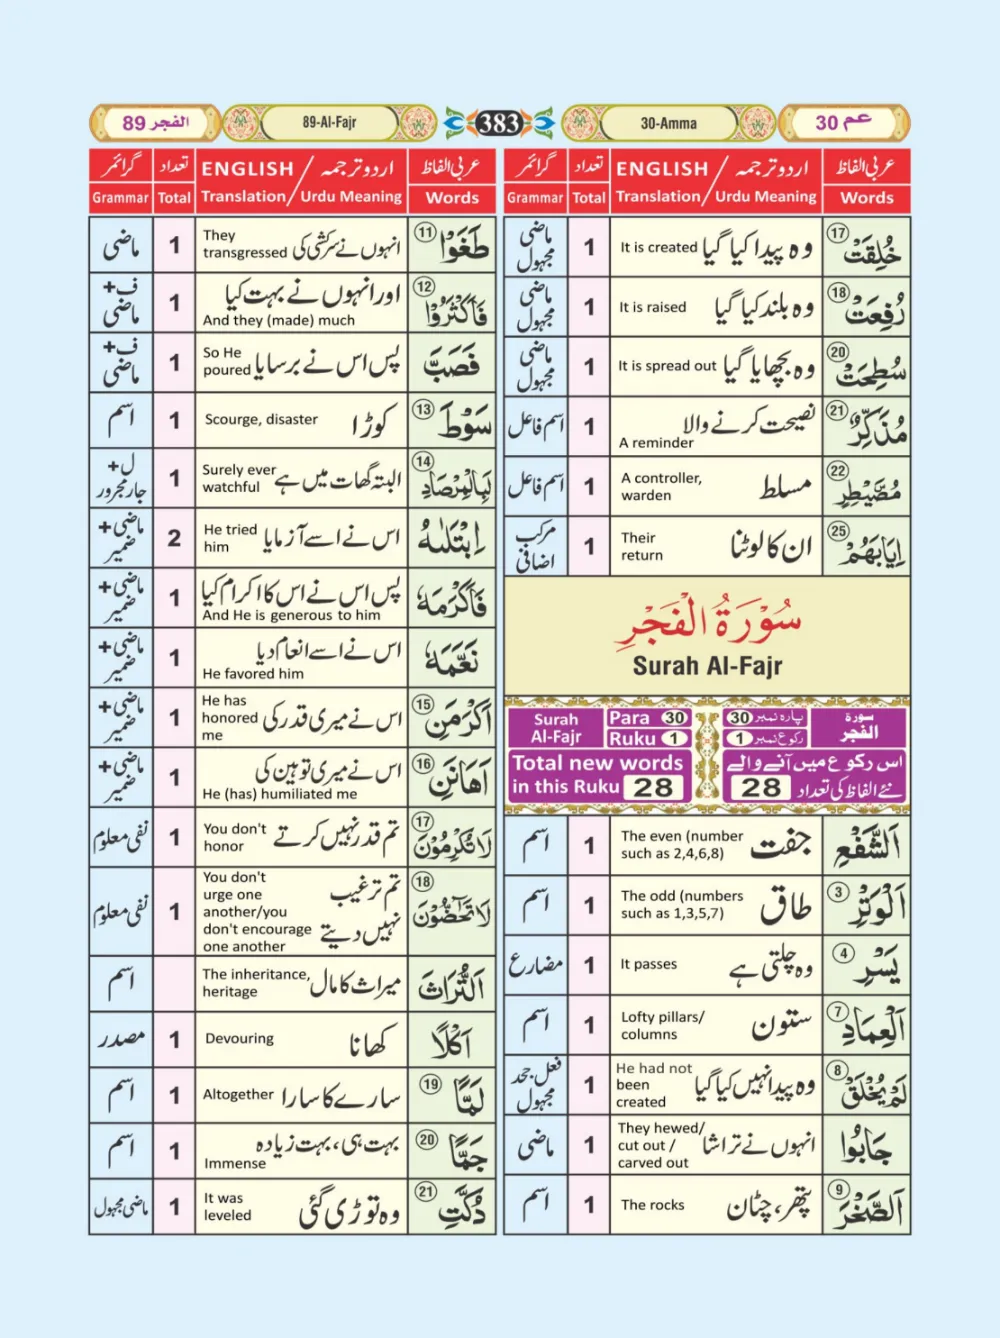 عم 30
30-Amma
383
89-Al-Fajr
الفجر 89
عربی الفاظ اردو ترجمہ / ENGLISH تعداد گرائمر
Words Urdu Meaning / Translation Total Grammar
⑰ خُلِقَتْ وہ پیدا کیا گیا It is created 1 ماضی مجہول
⑱ رُفِعَتْ وہ بلند کیا گیا It is raised 1 ماضی مجہول
⑳ سُطِحَتْ وہ بچھایا گیا It is spread out 1 ماضی مجہول
㉑ مُذَكِّرٌ نصیحت کرنے والا A reminder 1 اسم فاعل
㉒ مُصَۜيْطِرٍ مسلط A controller, warden 1 اسم فاعل
㉕ اِيَابَهُمْ ان کا لوٹنا Their return 1 مرکب اضافی
سُوْرَةُ الْفَجْرِ
Surah Al-Fajr
Surah Al-Fajr Para 30 پارہ نمبر 30 سورة الفجر
Ruku 1 رکوع نمبر 1
Total new words in this Ruku 28
اس رکوع میں آنے والے نئے الفاظ کی تعداد 28
الشَّفْعِ جفت The even (number such as 2,4,6,8) 1 اسم
③ الْوَتْرِ طاق The odd (numbers such as 1,3,5,7) 1 اسم
④ يَسْرِ وہ چلتی ہے It passes 1 مضارع
⑦ الْعِمَادِ ستون Lofty pillars/ columns 1 اسم
⑧ لَمْ يُخْلَقْ وہ پیدا نہیں کیا گیا He had not been created 1 فعل جحد مجہول
جَابُوا انہوں نے تراشا They hewed/ cut out / carved out 1 ماضی
⑨ الصَّخْرَ پتھر، چٹان The rocks 1 اسم
عربی الفاظ اردو ترجمہ / ENGLISH تعداد گرائمر
Words Urdu Meaning / Translation Total Grammar
⑪ طَغَوْا انہوں نے سرکشی کی They transgressed 1 ماضی
⑫ فَاَكْثَرُوْا اور انہوں نے بہت کیا And they (made) much 1 ف+ ماضی
فَصَبَّ پس اس نے برسایا So He poured 1 ف+ ماضی
⑬ سَوْطَ کوڑا Scourge, disaster 1 اسم
⑭ لَبِالْمِرْصَادِ البتہ گھات میں ہے Surely ever watchful 1 ل+ جار مجرور
ابْتَلٰىهُ اس نے اسے آزمایا He tried him 2 ماضی+ ضمیر
فَاَكْرَمَهٗ پس اس نے اس کا اکرام کیا And He is generous to him 1 ماضی+ ضمیر
نَعَّمَهٗ اس نے اسے انعام دیا He favored him 1 ماضی+ ضمیر
⑮ اَكْرَمَنِ اس نے میری قدر کی He has honored me 1 ماضی+ ضمیر
⑯ اَهَانَنِ اس نے میری توہین کی He (has) humiliated me 1 ماضی+ ضمیر
⑰ لَا تُكْرِمُوْنَ تم قدر نہیں کرتے You don't honor 1 نفی معلوم
⑱ لَا تَحٰٓضُّوْنَ تم ترغیب نہیں دیتے You don't urge one another/you don't encourage one another 1 نفی معلوم
التُّرَاثَ میراث کا مال The inheritance, heritage اسم
اَكْلًا کھانا Devouring 1 مصدر
⑲ لَمًّا سارے کا سارا Altogether 1 اسم
⑳ جَمًّا بہت ہی، بہت زیادہ Immense 1 اسم
㉑ دُكَّتِ وہ توڑی گئی It was leveled 1 ماضی مجہول